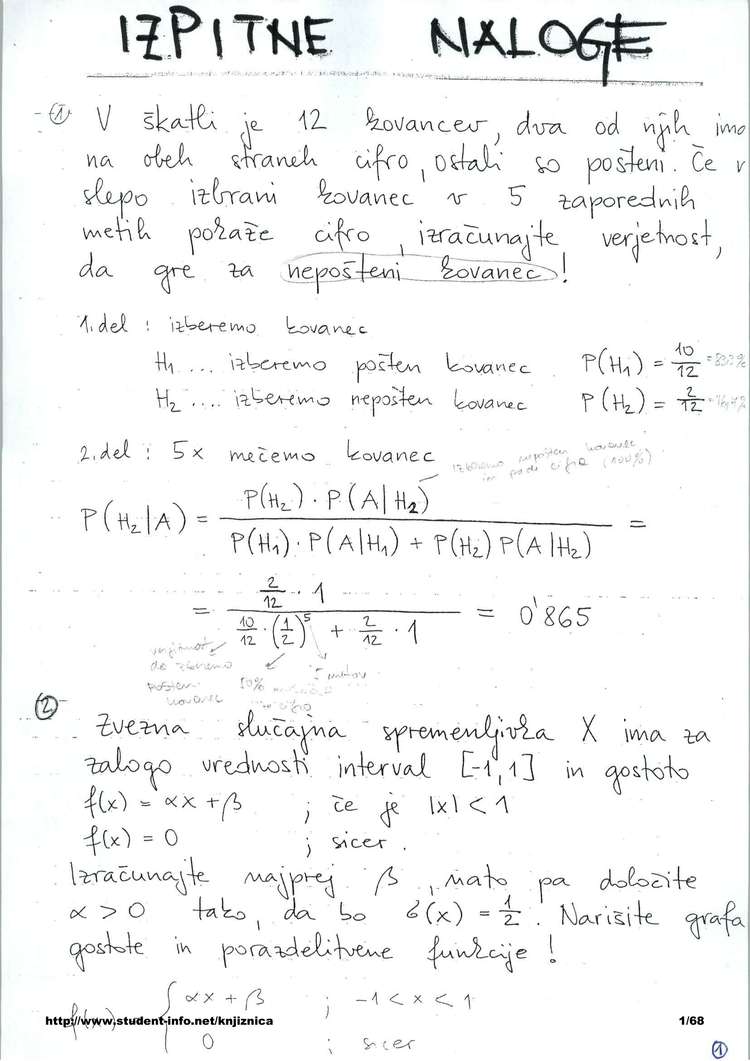 IZPITNE NALOGE
① V škatli je 12 kovancev, dva od njih imo
na obeh straneh cifro, ostali so pošteni. Če v
slepo izbrani kovanec v 5 zaporednih
metih pokaže cifro, izračunajte verjetnost,
da gre za nepošteni kovanec!
1. del : izberemo kovanec
H₁ ... izberemo pošten kovanec P(H₁) = 10/12
H₂ .... izberemo nepošten kovanec P(H₂) = 2/12
2. del : 5x mečemo kovanec
izberemo nepošten kovanec
in pade cifra (100%)
P(H₂|A) = P(H₂) · P(A|H₂) / P(H₁) · P(A|H₁) + P(H₂) P(A|H₂) =
= 2/12 · 1 / 10/12 · (1/2)⁵ + 2/12 · 1 = 0'865
5 metov
da izberemo
pošten 50%
kovanec cifro
② Zvezna slučajna spremenljivka X ima za
zalogo vrednosti interval [-1,1] in gostoto
f(x) = αx + β ; če je |x| < 1
f(x) = 0 ; sicer.
Izračunajte najprej β, nato pa določite
α > 0 tako, da bo σ(x) = 1/2. Narišite grafa
gostote in porazdelitvene funkcije!
αx + β ; -1 < x < 1
http://www.student-info.net/knjiznica 1/68
0 ; sicer
①